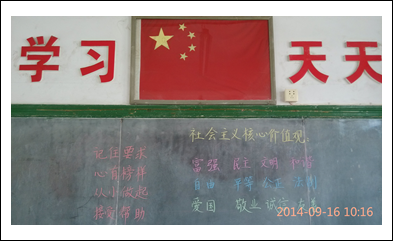 学习 天天
社会主义核心价值观
记住要求
心有榜样
从小做起
接受帮助
富强 民主 文明 和谐
自由 平等 公正 法制
爱国 敬业 诚信 友善
2014-09-16 10:16